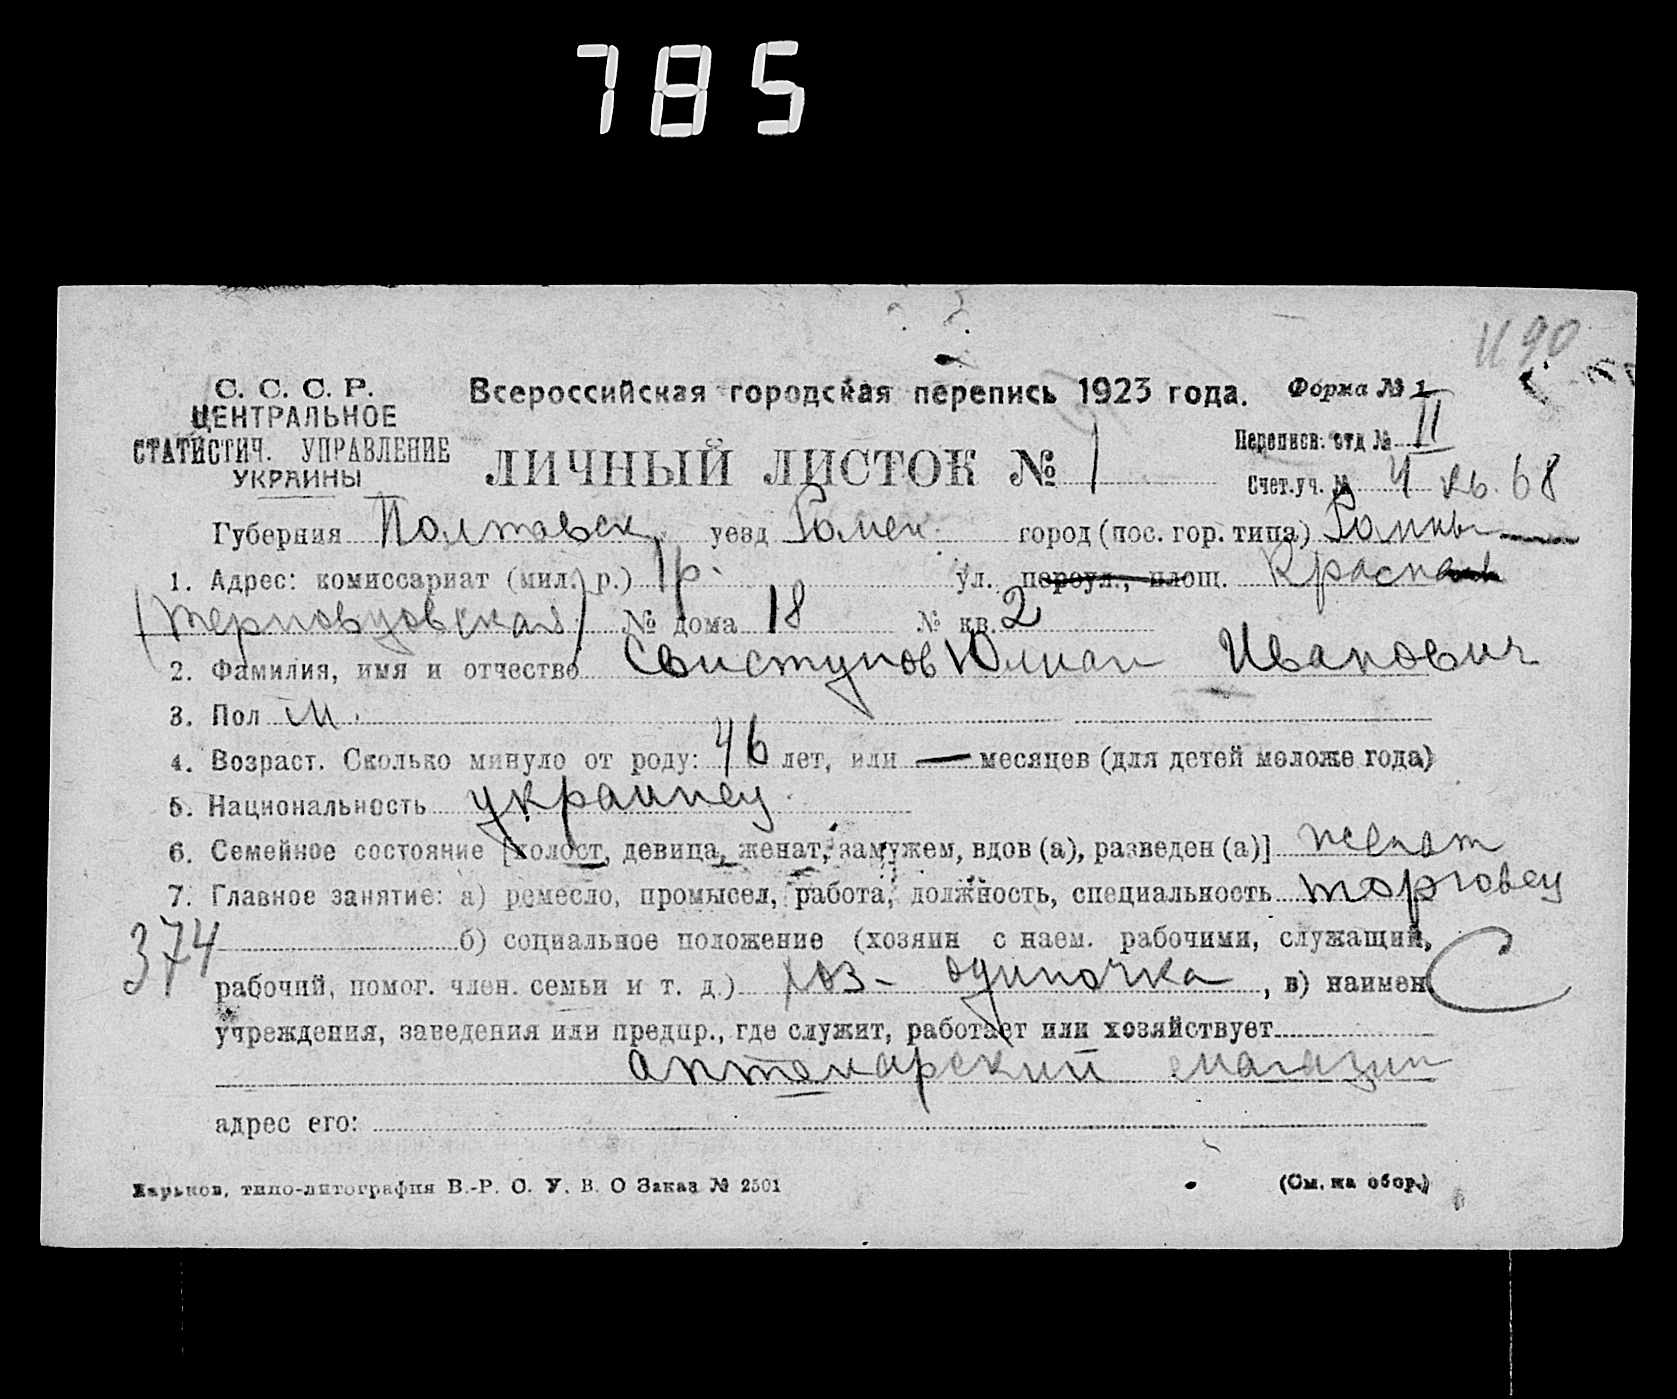 785
И 90
С. С. С. Р.
ЦЕНТРАЛЬНОЕ
СТАТИСТИЧ. УПРАВЛЕНИЕ
УКРАИНЫ
Всероссийская городская перепись 1923 года. Форма № 1
ЛИЧНЫЙ ЛИСТОК № 1
Переписн. отд № II
Счет.уч. № 4 кв. 68
Губерния Полтавск. уезд Ромен. город (пос. гор. типа) Ромны
1. Адрес: комиссариат (мил. р.) 1р. ул. переул., площ. Красная
( ) № дома 18 № кв. 2
2. Фамилия, имя и отчество Свистунов Юлиан Иванович
3. Пол м.
4. Возраст. Сколько минуло от роду: 46 лет, или — месяцев (для детей моложе года)
5. Национальность украинец.
6. Семейное состояние [холост, девица, женат, замужем, вдов (а), разведен (а)] женат
7. Главное занятие: а) ремесло, промысел, работа, должность, специальность торговец
374 б) социальное положение (хозяин с наем. рабочими, служащий,
рабочий, помог. член. семьи и т. д.) хоз- одиночка, в) наимен С
учреждения, заведения или предпр., где служит, работает или хозяйствует
аптекарский магазин
адрес его:
Харьков, типо-литография В.-Р. О. У. В. О Заказ № 2501 (См. на обор.)